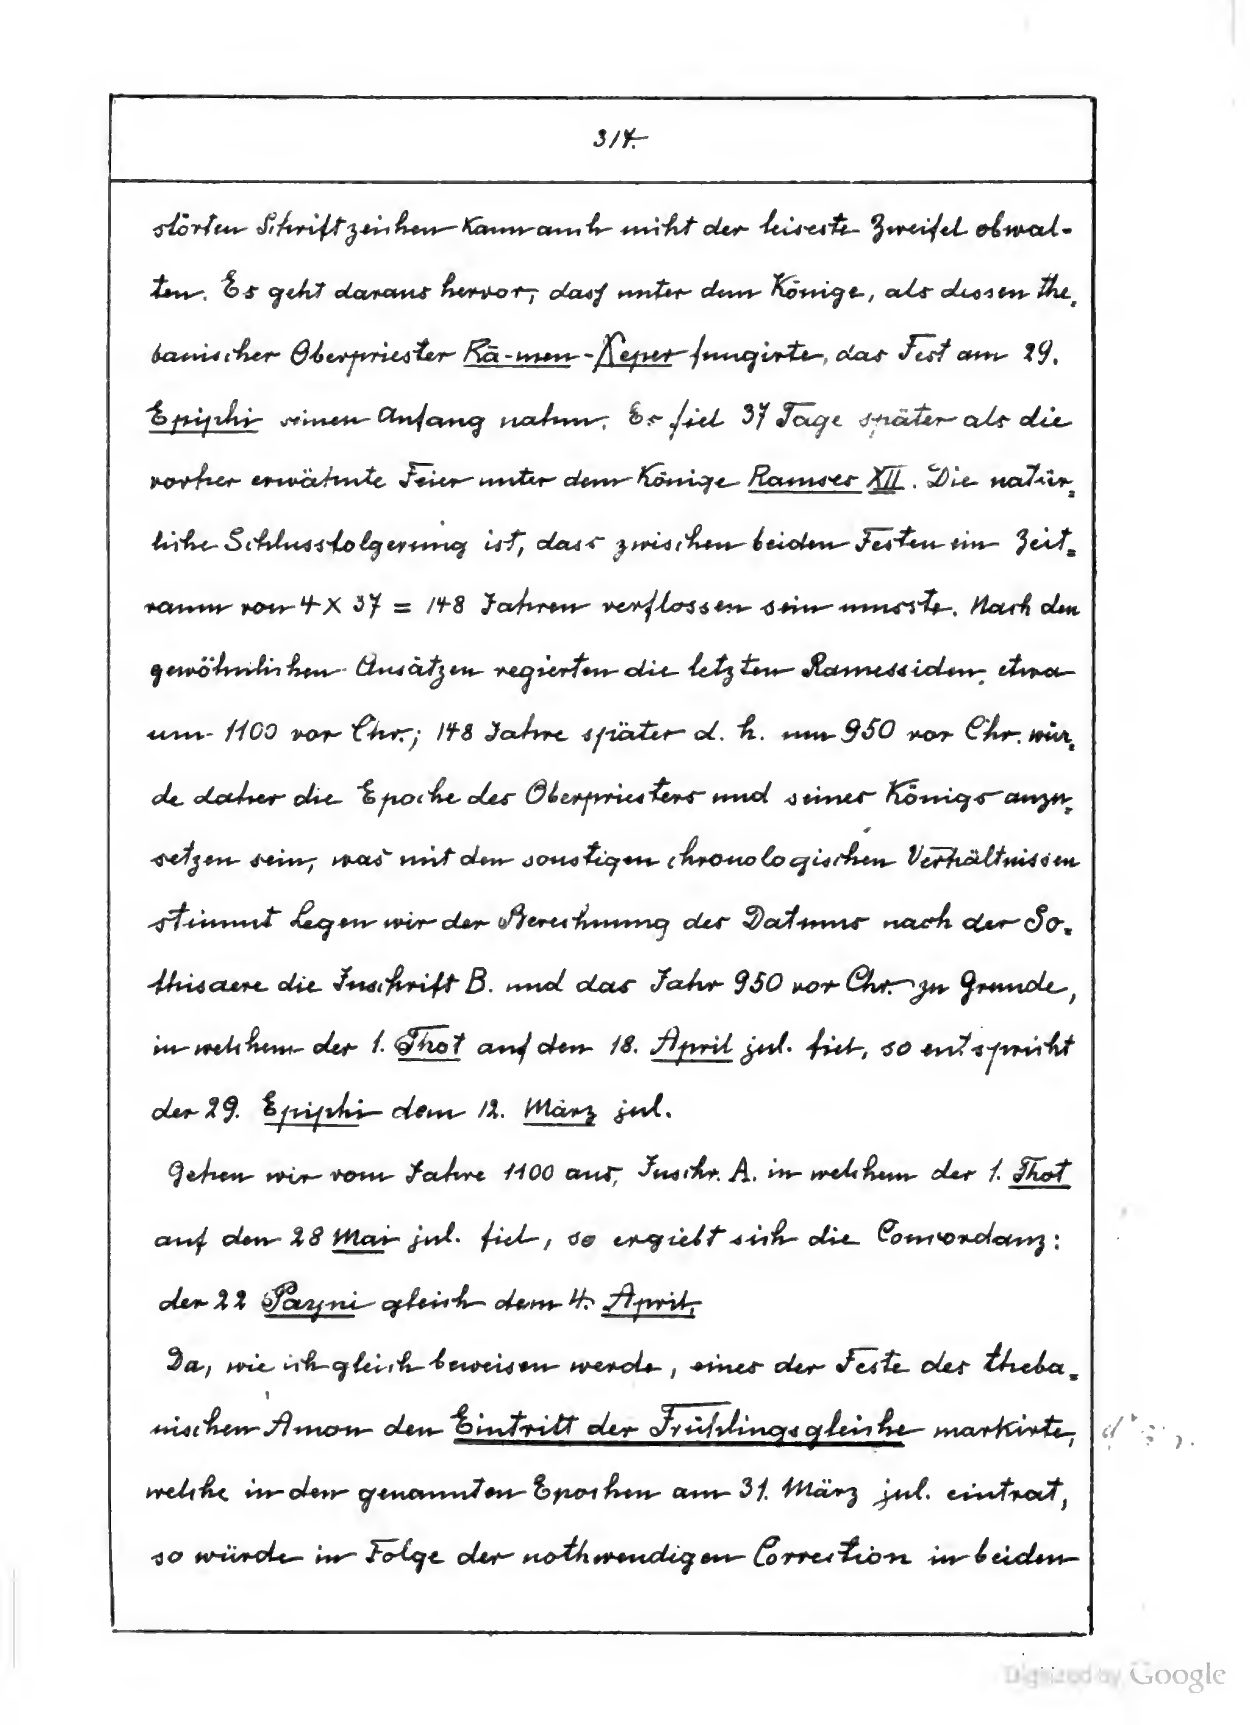 314.
störten Schriftzeichen kann auch nicht der leiseste Zweifel obwal-
ten. Es geht daraus hervor, dass unter dem Könige, als dessen the-
banischer Oberpriester Rā-men-Χeper fungirte, das Fest am 29.
Epiphi seinen Anfang nahm. Es fiel 37 Tage später als die
vorher erwähnte Feier unter dem Könige Ramses XII. Die natür-
liche Schlussfolgerung ist, dass zwischen beiden Festen ein Zeit-
raum von 4 X 37 = 148 Jahren verflossen sein musste. Nach den
gewöhnlichen Ansätzen regierten die letzten Ramessiden etwa
um 1100 vor Chr.; 148 Jahre später d. h. um 950 vor Chr. wür-
de daher die Epoche des Oberpriesters und seines Königs anzu-
setzen sein, was mit den sonstigen chronologischen Verhältnissen
stimmt Legen wir der Berechnung des Datums nach der So-
thisaere die Inschrift B. und das Jahr 950 vor Chr. zu Grunde,
in welchem der 1. Thot auf den 18. April jul. fiel, so entspricht
der 29. Epiphi dem 12. März jul.
Gehen wir vom Jahre 1100 aus, Inschr. A. in welchem der 1. Thot
auf den 28 Mai jul. fiel, so ergiebt sich die Concordanz:
der 22 Payni gleich dem 4. April.
Da, wie ich gleich beweisen werde, eines der Feste des theba-
nischen Amon den Eintritt der Frühlingsgleiche markirte,
welche in den genannten Epochen am 31. März jul. eintrat,
so würde in Folge der nothwendigen Correction in beiden
Digitized by Google